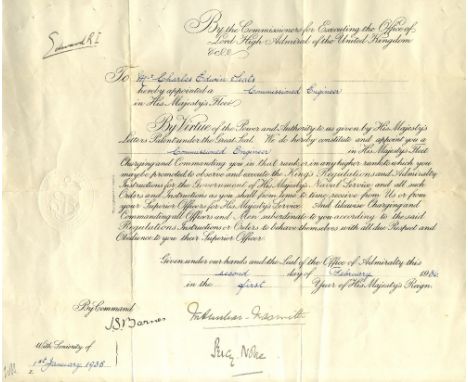 Edward R I
By the Commissioners for Executing the Office of
Lord High Admiral of the United Kingdom
&c &c &c
To Mr Charles Edwin
hereby appointed a Commissioned Engineer
in His Majesty's Fleet
By Virtue of the Power and Authority to us given by His Majesty's
Letters Patent under the Great Seal, We do hereby constitute and appoint you a
Commissioned Engineer in His Majesty's Fleet
Charging and Commanding you in that rank or in any higher rank to which you
may be promoted to observe and execute the King's Regulations and Admiralty
Instructions for the Government of His Majesty's Naval Service and all such
Orders and Instructions as you shall from time to time receive from Us or from
your Superior Officers for His Majesty's Service. And likewise Charging and
Commanding all Officers and Men subordinate to you according to the said
Regulations Instructions or Orders to behave themselves with all due Respect and
Obedience to you their Superior Officer
Given under our hands and the Seal of the Office of Admiralty this
second day of February 1936
in the first Year of His Majesty's Reign.
By Command
With Seniority of
1st January 1936
Dunbar-Nasmith
Percy Noble